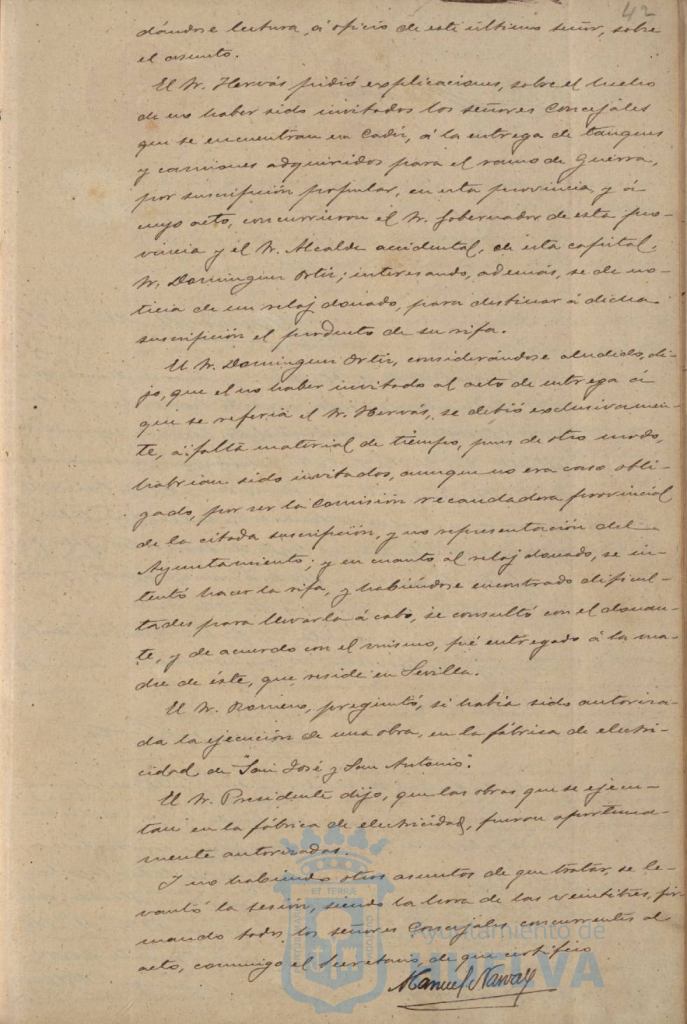 42
dándose lectura, á oficio de este último señor, sobre
el asunto.
El Sr. Hervás pidió explicaciones, sobre el hecho
de no haber sido invitados los señores Concejales
que se encuentran en Cadiz, á la entrega de tanques
y camiones adquiridos para el ramo de Guerra,
por suscripción popular, en esta provincia, y á
cuyo acto, concurrieron el Sr. Gobernador de esta pro-
vincia y el Sr. Alcalde accidental, de esta capital,
Sr. Dominguez Ortiz; interesando, además, se de no-
ticia de un reloj donado, para destinar á dicha
suscripción el producto de su rifa.
El Sr. Dominguez Ortiz, considerándose aludido, di-
jo, que el no haber invitado al acto de entrega á
que se referia el Sr. Hervás, se debió exclusivamen-
te, á falta material de tiempo, pues de otro modo,
habrian sido invitados, aunque no era caso obli-
gado, por ser la Comisión recaudadora provincial
de la citada suscripción, y no representación del
Ayuntamiento; y en cuanto al reloj donado, se in-
tentó hacer la rifa, y habiéndose encontrado dificul-
tades para llevarla á cabo, se consultó con el donan-
te, y de acuerdo con el mismo, fué entregado á la ma-
dre de éste, que reside en Sevilla.
El Sr. Romero, preguntó, si había sido autoriza-
da la ejecución de una obra, en la fábrica de electri-
cidad de "San José y San Antonio".
El Sr. Presidente dijo, que las obras que se ejecu-
tan en la fábrica de electricidad, fueron oportuna-
mente autorizadas.
Y no habiendo otros asuntos de que tratar, se le-
vantó la sesión, siendo la hora de las veintitres, fir-
mando todos los señores Concejales concurrentes al
acto, conmigo el Secretario, de que certifico
Manuel Narvaez
ET TERRÆ
Ayuntamiento de
HUELVA